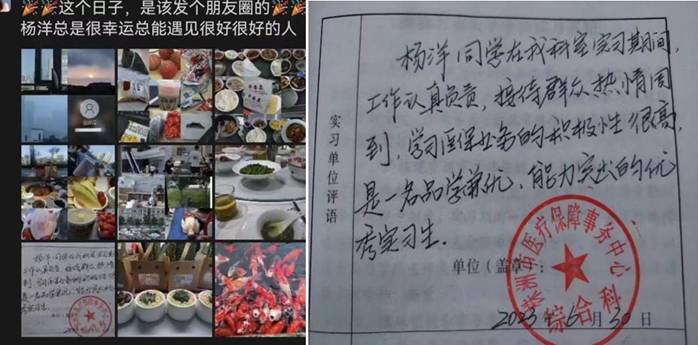 这个日子，是该发个朋友圈的
杨洋总是很幸运总能遇见很好很好的人
实习单位评语
杨洋同学在我科室实习期间，
工作认真负责，接待群众热情周
到，学习医保业务的积极性很高，
是一名品学兼优、能力突出的优
秀实习生.
单位（盖章）：
医疗保障事务中心
综合科
2023年6月30日